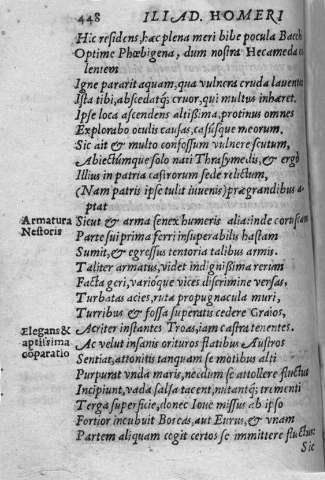 448 ILIAD. HOMERI
Hic residens, hæc plena meri bibe pocula Bacch
Optime Phœbigena, dum nostra Hecameda
lentem
Igne pararit aquam, qua vulnera cruda lauentur
Ista tibi, abscedatq; cruor, qui multus inhæret.
Ipse loca ascendens altissima, protinus omnes
Explorabo oculis causas, casúsque meorum.
Sic ait & multo confossum vulnere scutum,
Abiectúmque solo nati Thrasymedis, & ergò
Illius in patria castrorum sede relictum,
(Nam patris ipse tulit iuuenis) prægrandibus a-
ptat
Armatura Nestoris
Sicut & arma senex humeris alia: inde coruscam
Parte sui prima ferri insuperabilis hastam
Sumit, & egressus tentoria talibus armis.
Taliter armatus, videt indignissima rerum
Facta geri, varióque vices discrimine versas,
Turbatas acies, ruta propugnacula muri,
Turribus & fossa superatis cedere Graios,
Acriter instantes Troas, iam castra tenentes.
Elegans & aptissima cōparatio
Ac velut insanis orituros flatibus Austros
Sentiat, attonitis tanquam se motibus alti
Purpurat vnda maris, necdum se attollere fluctus
Incipiunt, vada salsa tacent, nutantq; trementi
Terga superficie, donec Ioue missus ab ipso
Fortior incubuit Boreas, aut Eurus, & vnam
Partem aliquam cogit certos se immittere fluctus:
Sic